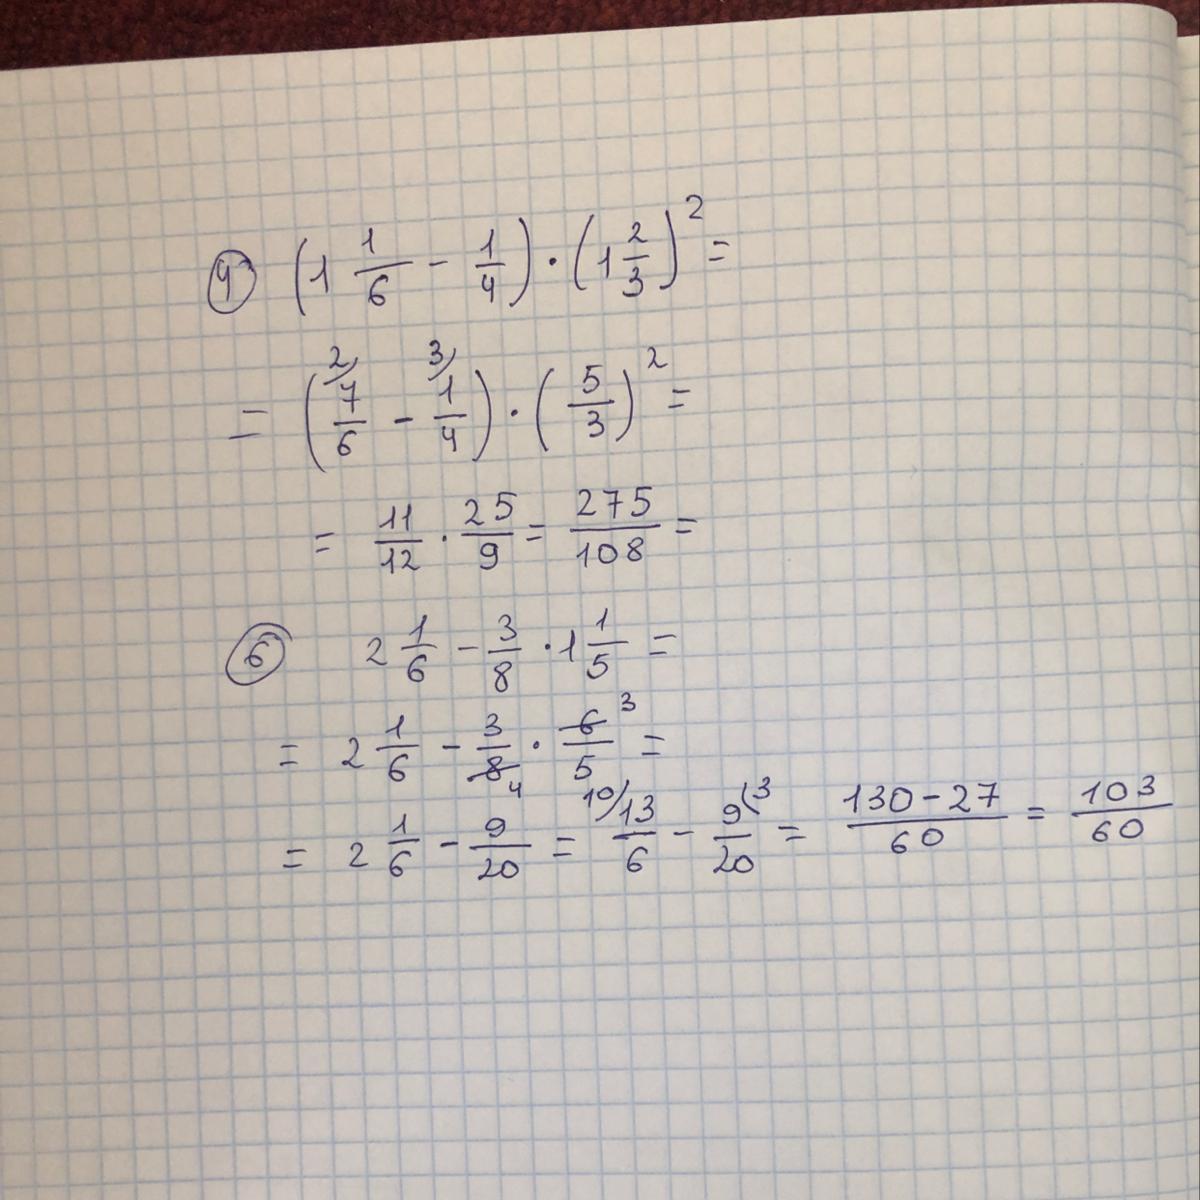 ④ (1 1/6 - 1/4) · (1 2/3)² =
= (²⁾7/6 - ³⁾1/4) · (5/3)² =
= 11/12 · 25/9 = 275/108 =
⑥ 2 1/6 - 3/8 · 1 1/5 =
= 2 1/6 - 3/8 4 · 6/5 3 =
= 2 1/6 - 9/20 = 10/ 13/6 - 9/20 (3 = 130-27/60 = 103/60